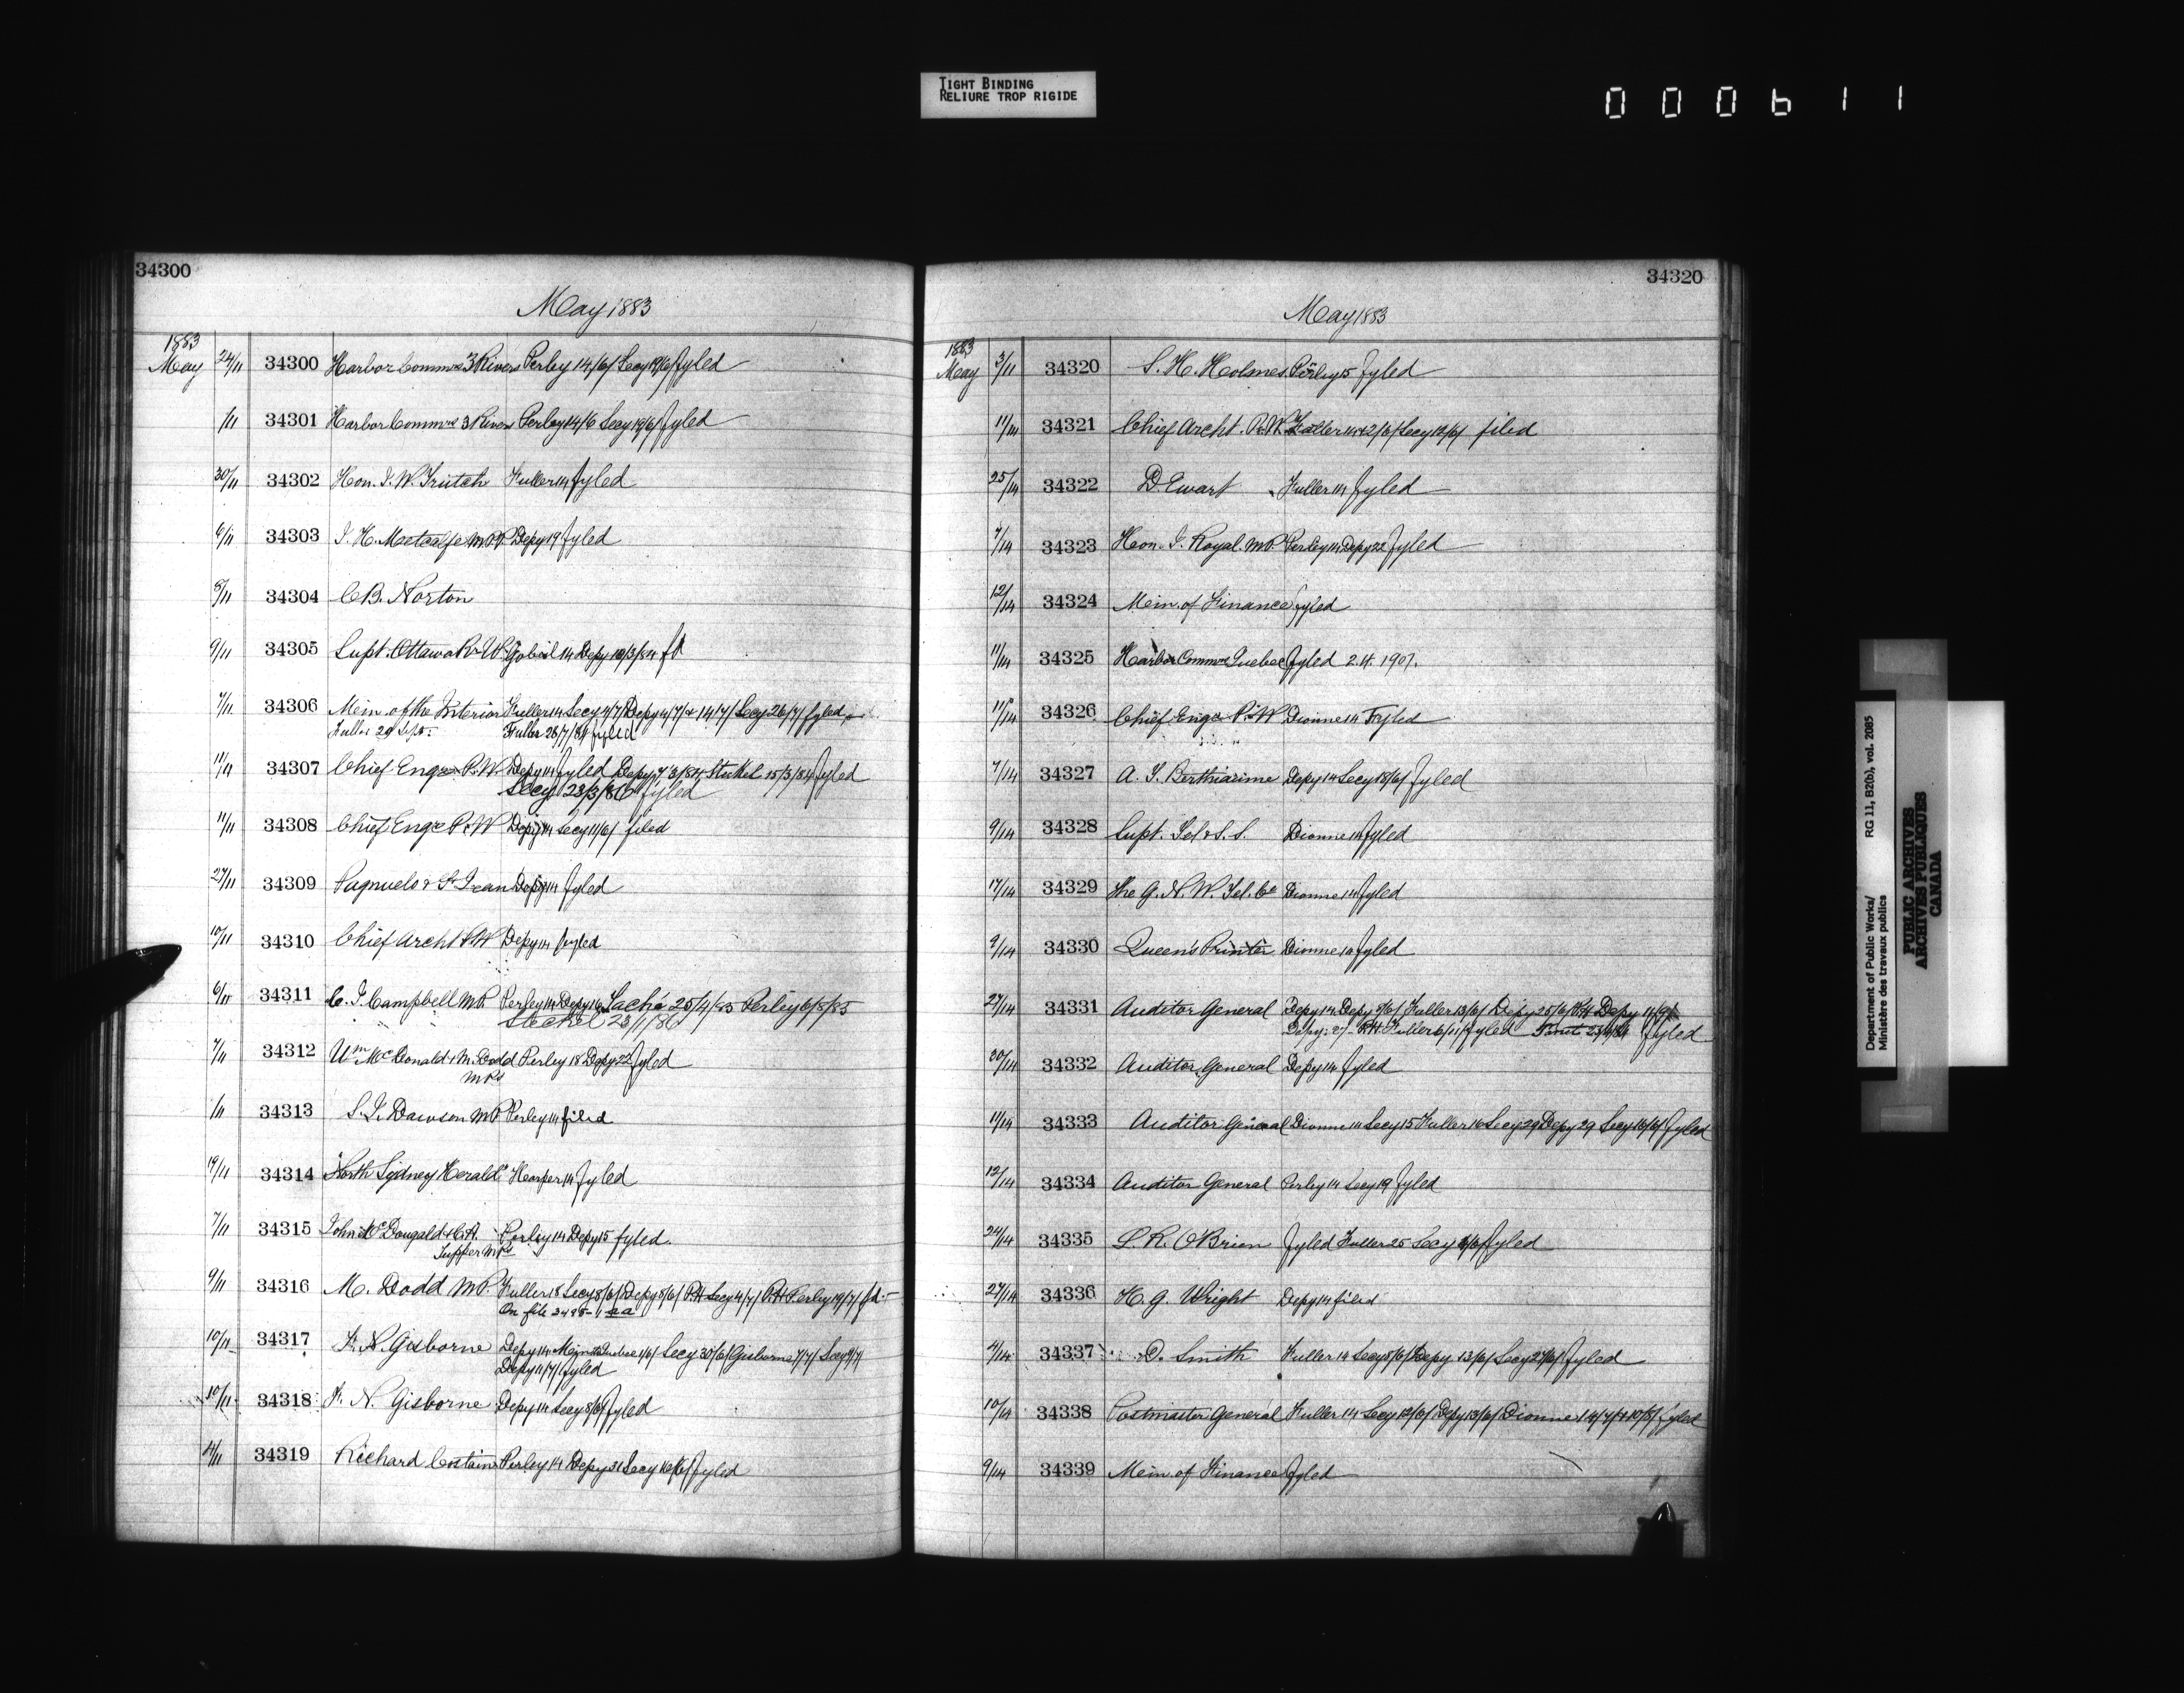 TIGHT BINDING
RELIURE TROP RIGIDE
000611
34300
May 1883
1883
May 24/11 34300 Harbor Commrs 3 Rivers Perley 14/6/ Secy 19/6/ fyled
/11 34301 Harbor Commrs 3 Rivers Perley 14/6 Secy 19/6/ fyled
30/11 34302 Hon. J. W. Trutch Fuller 14 fyled
6/11 34303 J. H. Metcalfe M.P.P. Depy 19 fyled
8/11 34304 C. B. Norton
9/11 34305 Supt. Ottawa Rr W. Gobeil 14 Depy 10/3/84 fd
7/11 34306 Min. of the Interior Fuller 14 Secy 4/7/ Depy 4/7/ & 14/7/ Secy 26/7/ fyled
Fuller 29 Sept. Fuller 26/7/84 fyled
11/11 34307 Chief Engr P.W. Depy 14 fyled Depy 7/3/84 Steckel 15/3/84 fyled
Secy 23/3/86 fyled
11/11 34308 Chief Engr P.W Depy 14 Secy 11/6/ filed
27/11 34309 Pagnuelo & St Jean Depy 14 fyled
10/11 34310 Chief Archt P.W Depy 14 fyled
6/11 34311 C. J. Campbell M.P. Perley 14 Depy 16 Taché 25/4/85 Perley 6/5/85
Steckel 23/1/86
7/11 34312 Wm McDonald & M. Dodd Perley 18 Depy 22 fyled
M.P.s
/11 34313 S. J. Dawson M.P. Perley 14 filed
19/11 34314 "North Sydney Herald" Harper 14 fyled
7/11 34315 John McDougald & C. H. Perley 14 Depy 15 fyled.
Tupper M.P.s
9/11 34316 M. Dodd M.P. Fuller 15 Secy 8/6/ Depy 8/6/ P.H. Secy 4/7/ P.H. Perley 19/7/ fd.
On file 3495-1 aa
10/11 34317 F. N. Gisborne Depy 14 1/6/ Secy 30/6/ Gisborne 7/7/ Secy 9/7/
Depy 11/7/ fyled
10/11 34318 F. N. Gisborne Depy 14 Secy 8/6/ fyled
4/11 34319 Richard Costain Perley 14 Depy 31 Secy 16/6/ fyled
34320
May 1883
1883
May 3/11 34320 S. H. Holmes Perley 15 fyled
11/14 34321 Chief Archt. P.W. Fuller 14 & 2/6/ Secy 12/6/ filed
25/14 34322 D. Ewart Fuller 14 fyled
7/14 34323 Hon. J. Royal M.P. Perley 14 Depy 22 fyled
12/14 34324 Min. of Finance fyled
11/14 34325 Harbor Commrs Quebec fyled 2.4.1907.
11/14 34326 Chief Engr P.W Dionne 14 Fyled
7/14 34327 A. J. Berthiaume Depy 14 Secy 18/6/ fyled
9/14 34328 Supt. Tel & S. S. Dionne 14 fyled
17/14 34329 The G. N. W. Tel. Co Dionne 14 fyled
9/14 34330 Queen's Printer Dionne 14 fyled
27/14 34331 Auditor General Depy 14 Depy 9/6/ Fuller 13/6/ Depy 25/6/ P.H. Depy 11/9/
Depy. 27 P.H. Fuller 6/11/ fyled fyled
30/14 34332 Auditor General Depy 14 fyled
11/14 34333 Auditor General Dionne 14 Secy 15 Fuller 16 Secy 29 Depy 29 Secy 16/6/ fyled
12/14 34334 Auditor General Perley 14 Secy 19 fyled
24/14 34335 L. R. O'Brien fyled Fuller 25 Secy fyled
27/14 34336 H. G. Wright Depy 14 filed
4/14 34337 D. Smith Fuller 14 Secy 8/6/ Depy 13/6/ Secy 27/6/ fyled
10/14 34338 Postmaster General Fuller 14 Secy 12/6/ Depy 13/6/ Dionne 14/7/ & 10/8/ fyled
9/14 34339 Min. of Finance fyled
Department of Public Works/ RG 11, B2(b), vol. 2085
Ministère des travaux publics
PUBLIC ARCHIVES
ARCHIVES PUBLIQUES
CANADA